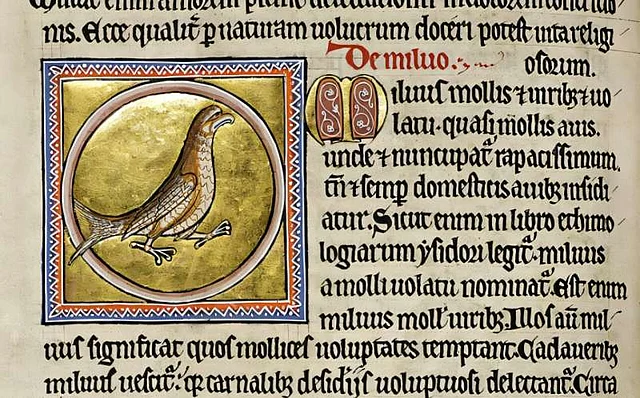 ms. Ecce qualit̃ p naturam uolucrum doceri potest uita religi
De miluo. osorum.
Miluus mollis ⁊ uiribȝ ⁊ uo
latu. quasi mollis auis.
unde ⁊ nuncupat̃ rapacissimum.
tñ ⁊ semp domesticis auibȝ insidi
atur. Sicut enim in libro ethimo
logiarum ysidori legit̃. miluus
a molli uolatu nominat̃. Est enim
miluus moll̕ uiribȝ. Illos aũ mil
uus significat quos mollices uoluptates temptant. Cadaueribȝ
miluus uescit̃. qꝛ carnalibȝ desidijs uoluptuosi delectant̃. Circa